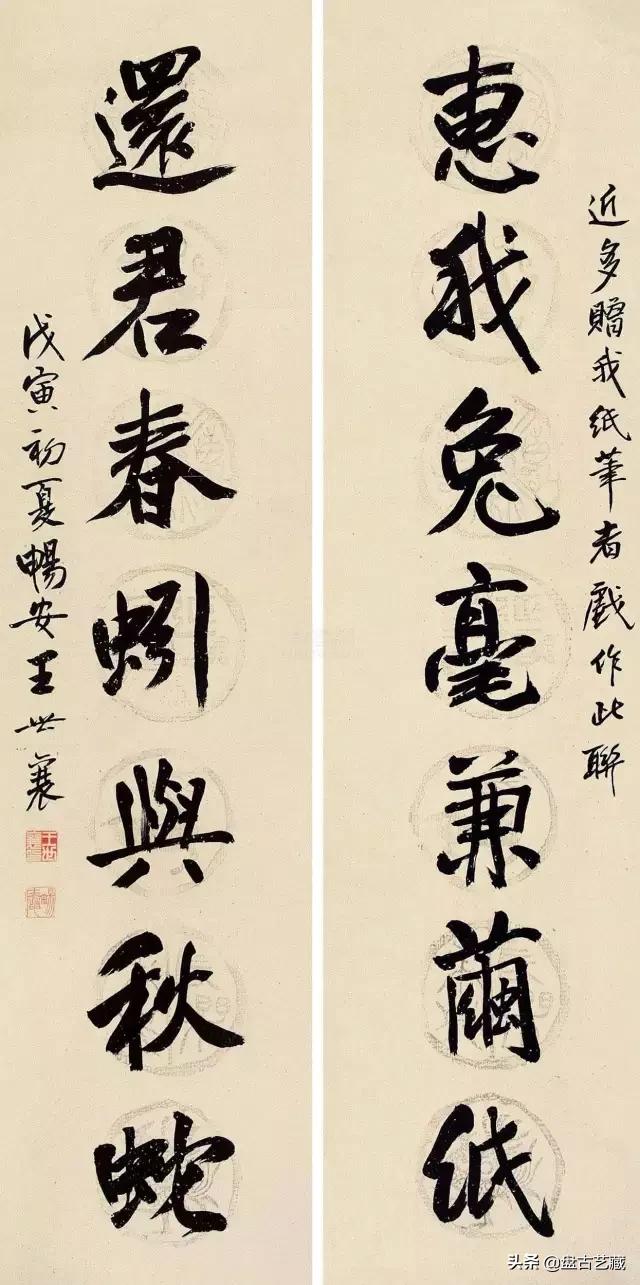 近多贈我紙筆者戲作此聯
惠我兔毫兼繭紙
還君春蚓與秋蛇
戊寅初夏暢安王世襄
头条 @盘古艺藏